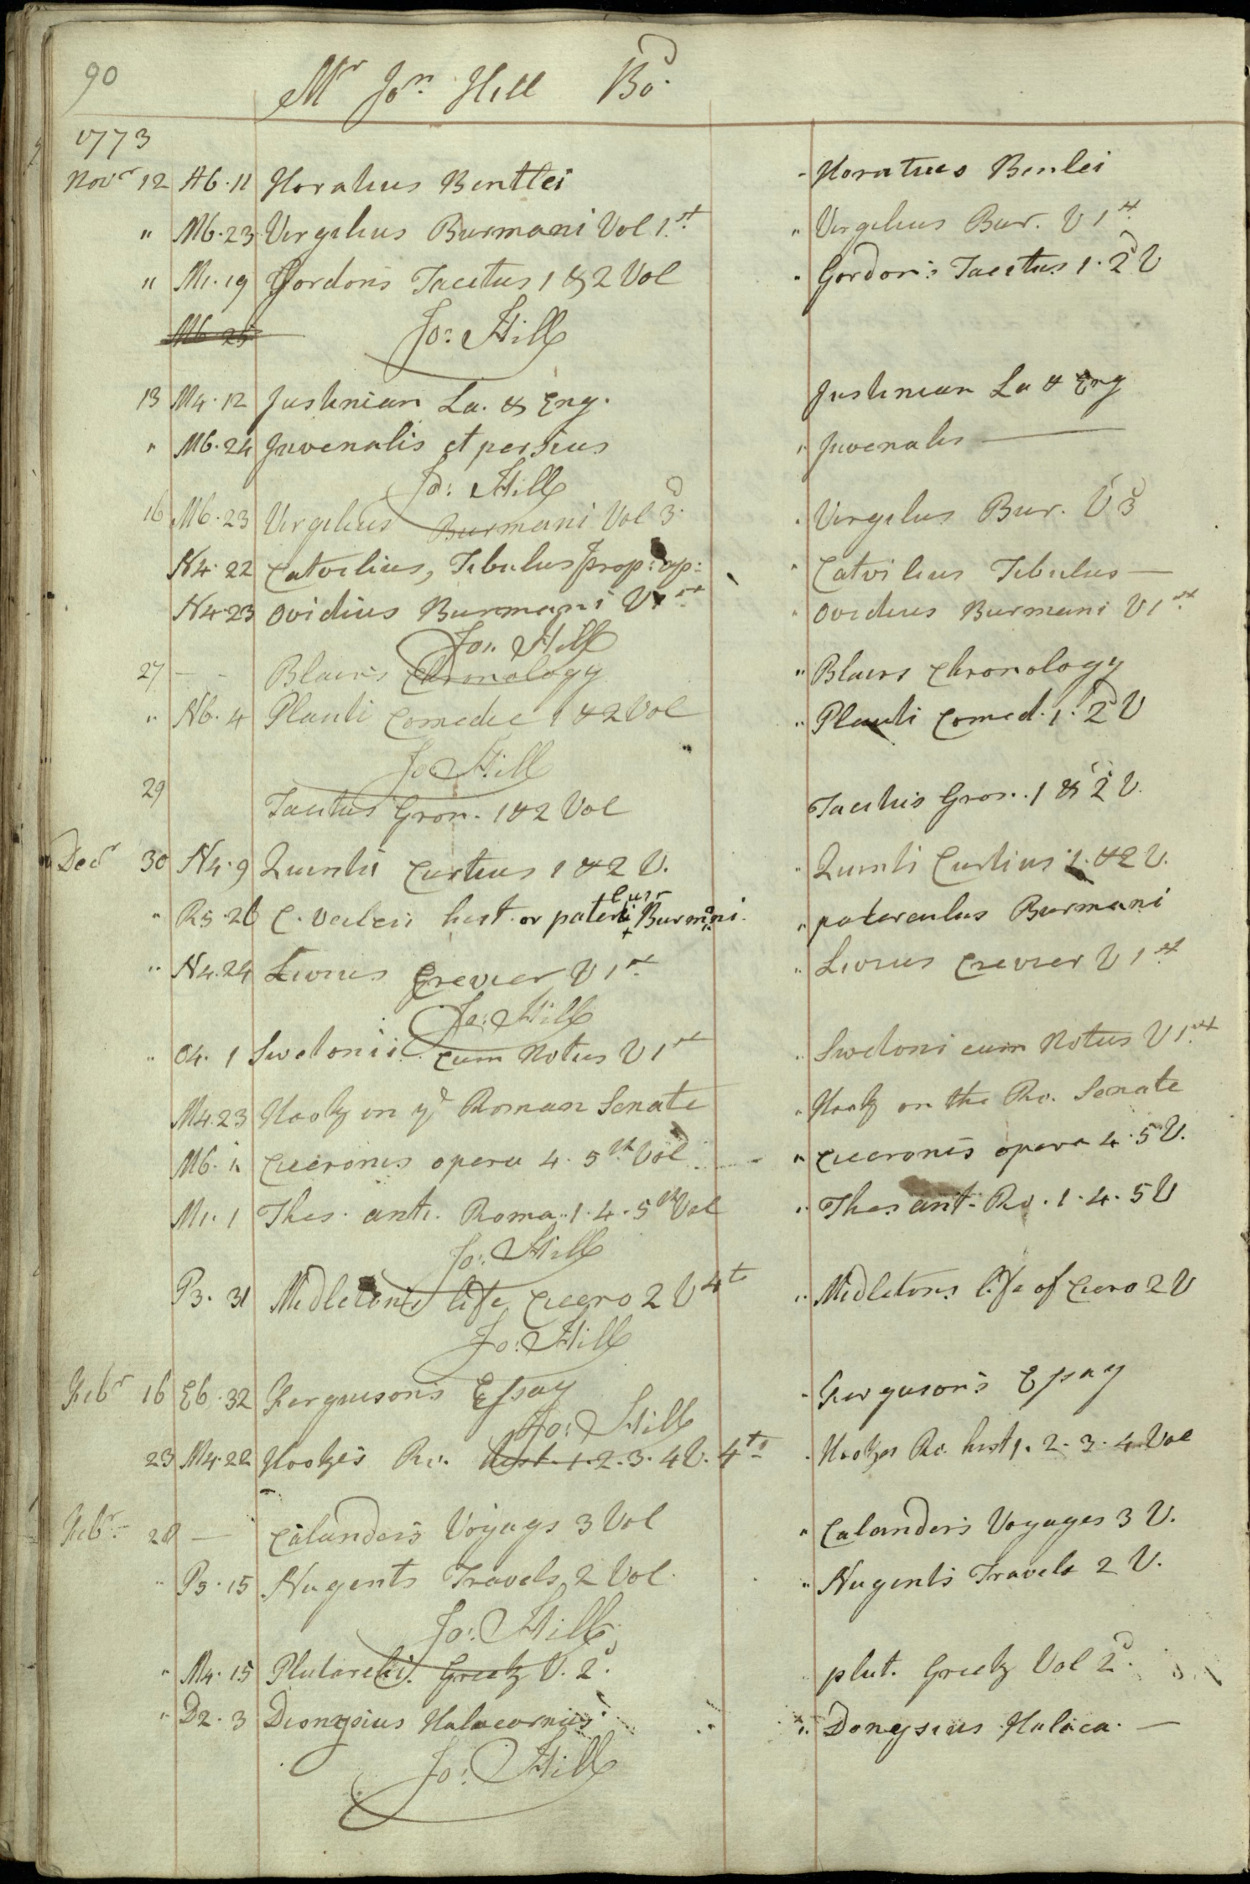 90 Mr Jon. Hill Bod.
1773
Novr 12 H6.11 Horatius Benttlei - Horatius Benlei
" M6.23 Virgilius Burmani Vol 1.st " Virgilius Bur. V 1st
" M1.19 Gordons Tacitus 1 & 2 Vol - Gordon's Tacitus 1. 2d V
M6 25 Jo: Hill
13 M4.12 Justinian La. & Eng. Justinian La & Eng
" M6.24 Juvenalis et persius " Juvenalis —
Jo: Hill
16 M6.23 Virgilius Burmani Vol 3d. . Virgilus Bur. V 3d
N4.22 Catvilius, Tibulus prop: ap: " Catvilius Tibulus —
N4.23 Ovidius Burmani V 1st " Ovidius Burmani V 1st
Jo: Hill
27 — - Blairs Chronology " Blairs Chronology
" N6.4 Plauti Comediee 1 & 2 Vol " Plauti Comed. 1. 2d V
Jo: Hill
29 Tacitus Gron. 1 & 2 Vol Tacitus Gron. 1 & 2 V.
Decr 30 N4.9 Quintii Curtius 1 & 2 V. " Quinti Curtius 1. & 2 V.
" R5.26 C. Vellei hist. or paterculi Burmani. " paterculus Burmani
" N4.24 Livius Crevier V 1st " Livius Crevier V 1st
Jo: Hill
" O4.1 Swetonii cum Notus V 1st " Swetoni cum Notus V 1st
M4.23 Hook on ye Roman Senate " Hook on the Ro. Senate
M6.1 Ciceronis opera 4. 5th Vol " Ciceronis opera 4. 5 V.
M1.1 Thes. anti. Roma. 1. 4. 5th Vol " Thes ant. Ro. 1. 4. 5 V
Jo: Hill
P3.31 Midletons life Cicero 2 V 4to " Midletons life of Cicero 2 V
Jo: Hill
Febr 16 E6.32 Fergusons Essay - Ferguson's Essay
Jo: Hill
23 M4.22 Hooke's Ro. hist. 1. 2. 3. 4 V. 4to - Hookes Ro. hist 1. 2. 3. 4 Vol
Febr. 28 — Calander's Voyags 3 Vol " Calander's Voyages 3 V.
" P3.15 Nugents Travels 2 Vol. " Nugents Travels 2 V.
Jo: Hill
" M4.15 Plutarchi. Greek V. 2d. plut. Greek Vol 2d.
" D2.3 Dionysius Halacarnus " Donysius Halica. —
Jo: Hill